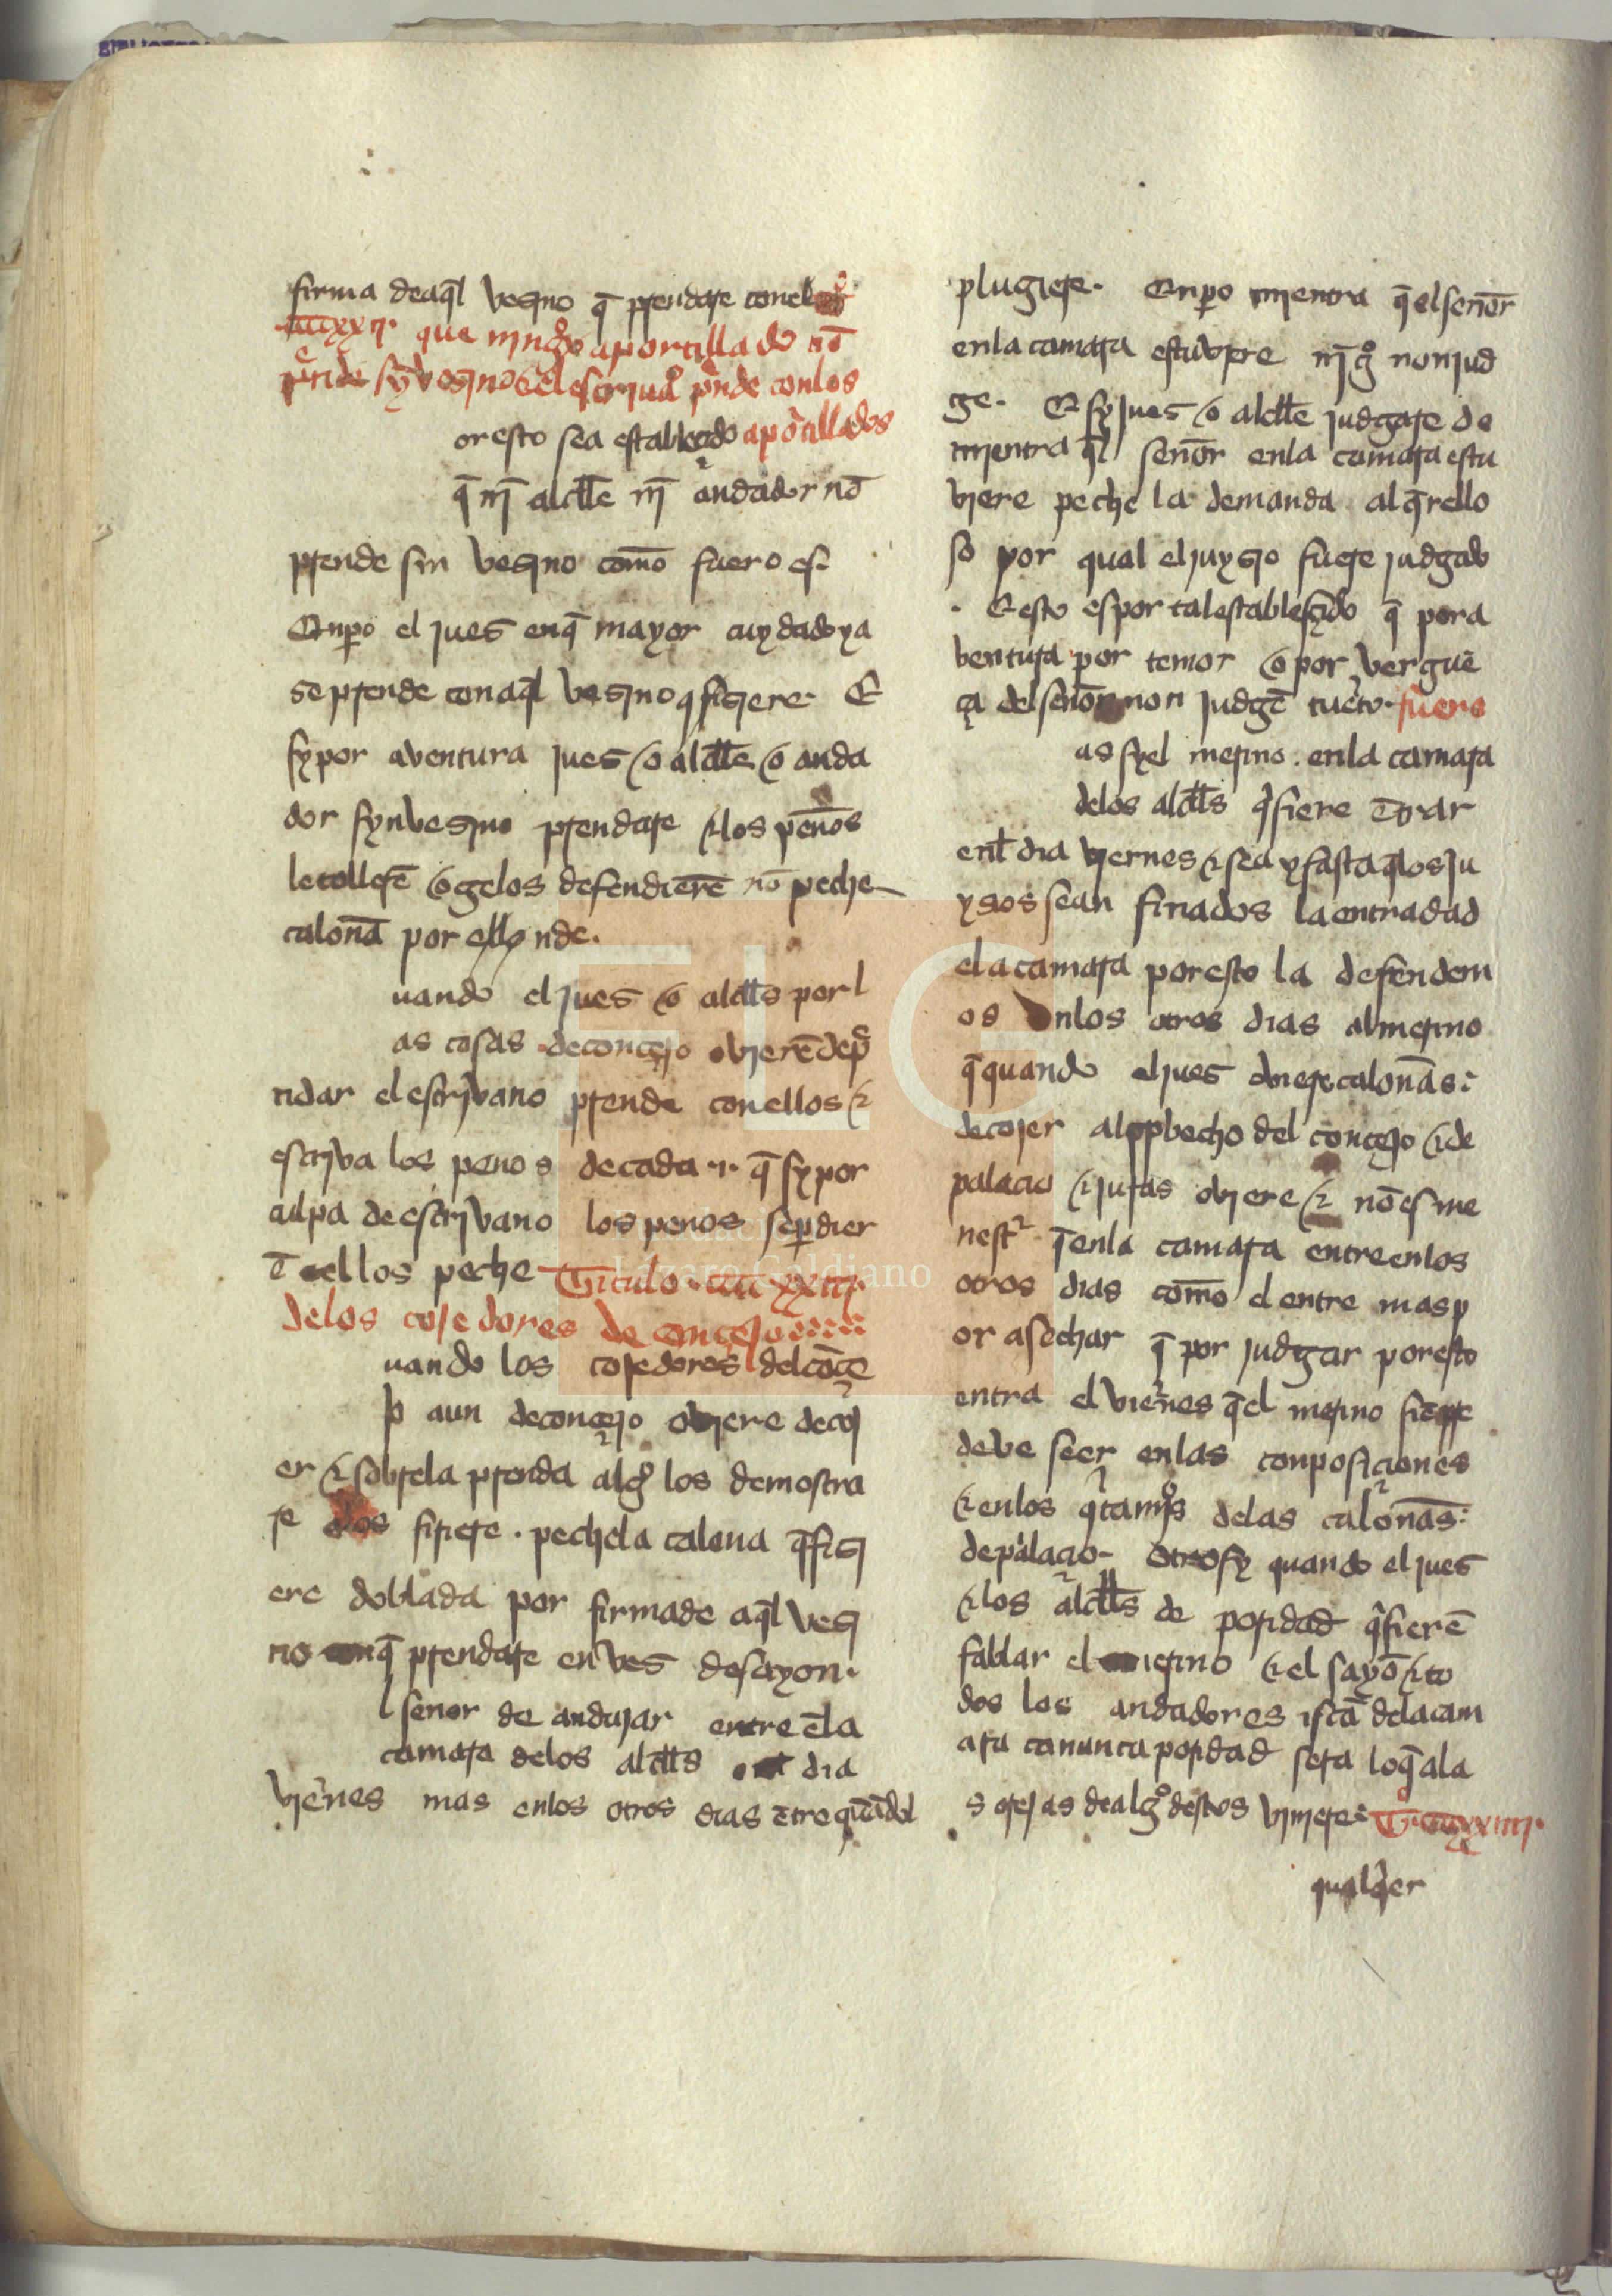 firma deaq̃l vesino q̃ prendare conel
ccc xx ij. que nĩgũo aportillado nõ
prẽnde syn vesino & el escriuã prẽnde conlos
or esto sea establecido aportillados
q̃ nj̃ alcłłe nj̃ andador nõ
prende sin vesino com̃o fuero es.
Enp̱o el jues enq̃ mayor cuydado ya
se prende con aq̃l vesino q̃ sisiere. E
sy por aventura jues o alcłłe o anda
dor syn vesino prendare & los peños
le tollerẽ o gelos defendierẽ nõ peche
caloñã por ello nde.
uando el jues o alcłłs por l
as cosas de conçejo ovierẽ de pẽ
ndar el escrivano prende conellos &
escriva los peños de cada .i. q̃ sy por
culpa de escrivano los peños se p̱dier
ẽ el los peche Titulo. ccc xx iij.
delos cojedores de conçejo
uando los cojedores del cõçe
jo aun de conçejo oviere decoj
er & sobrela prenda algõ los demostra
re o los firiere. peche la caloña q̃ fisi
ere doblada por firma de aq̃l vesi
no conq̃ prendare en ves de sayon.
l señor de andujar entre ẽla
camara delos alcłłs el dia
viẽrnes mas enlos otros dias ẽtre quãdol
plugiere. Enp̱o mientra q̃el señor
enla camara estuvyere nj̃gõ non jud
ge. E sy jues o alcłłe judgare de
mientra q̃l señor enla camara estu
viere peche la demanda al q̃rello
so por qual el juysio fuere judgado
. E esto es por tal establesçido q̃ por a
ventura por temor o por verguẽ
ça del señor non judgẽ tuẽrto. fuero
as sy el merino. enla camara
delos alcłłs q̃siere ẽtrar
enl̃ dia viernes & sea y fasta q̃los ju
ysios sean finados la entrada d
ela camara por esto la defendem
os enlos otros dias al merino
q̃ quando el jues oviere caloñas
de cojer al pro vecho del conçejo & de
palacio & juras oviere & nõ es me
nester q̃ enla camara entre enlos
otros dias com̃o el entre mas p
or asechar q̃ por judgar por esto
entra el viẽrnes q̃ el merino sienpre
deve seer enlas conposiçiones
& enlos q̃tamjõs delas caloñas
de palacio. Otrosy quando el jues
& los alcłłs de poridad q̃sierẽ
fablar el merino & el sayõ & to
dos los andadores iscã dela cam
ara ca nunca poridad sera lo q̃ ala
s orejas de algõ destos viniere Ti ccc xx iiij.
qualq̃er